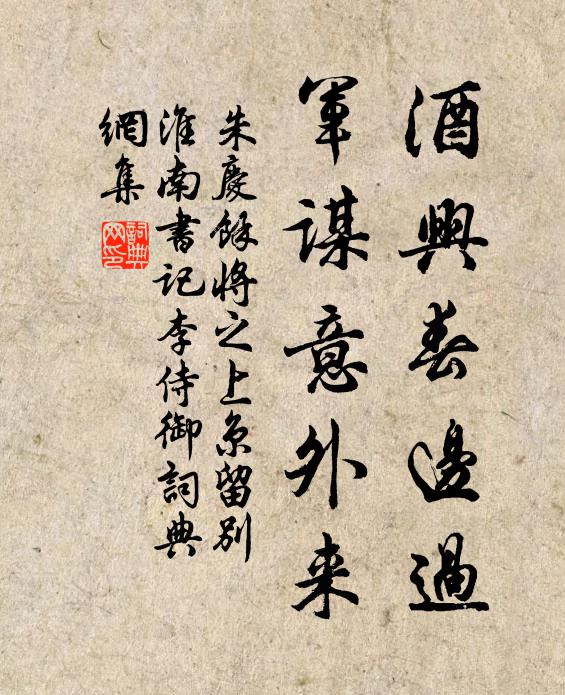 酒興春邊過
軍謀意外来
朱慶餘將之上京留別
淮南書記李侍御詞典
網集
詞典網印